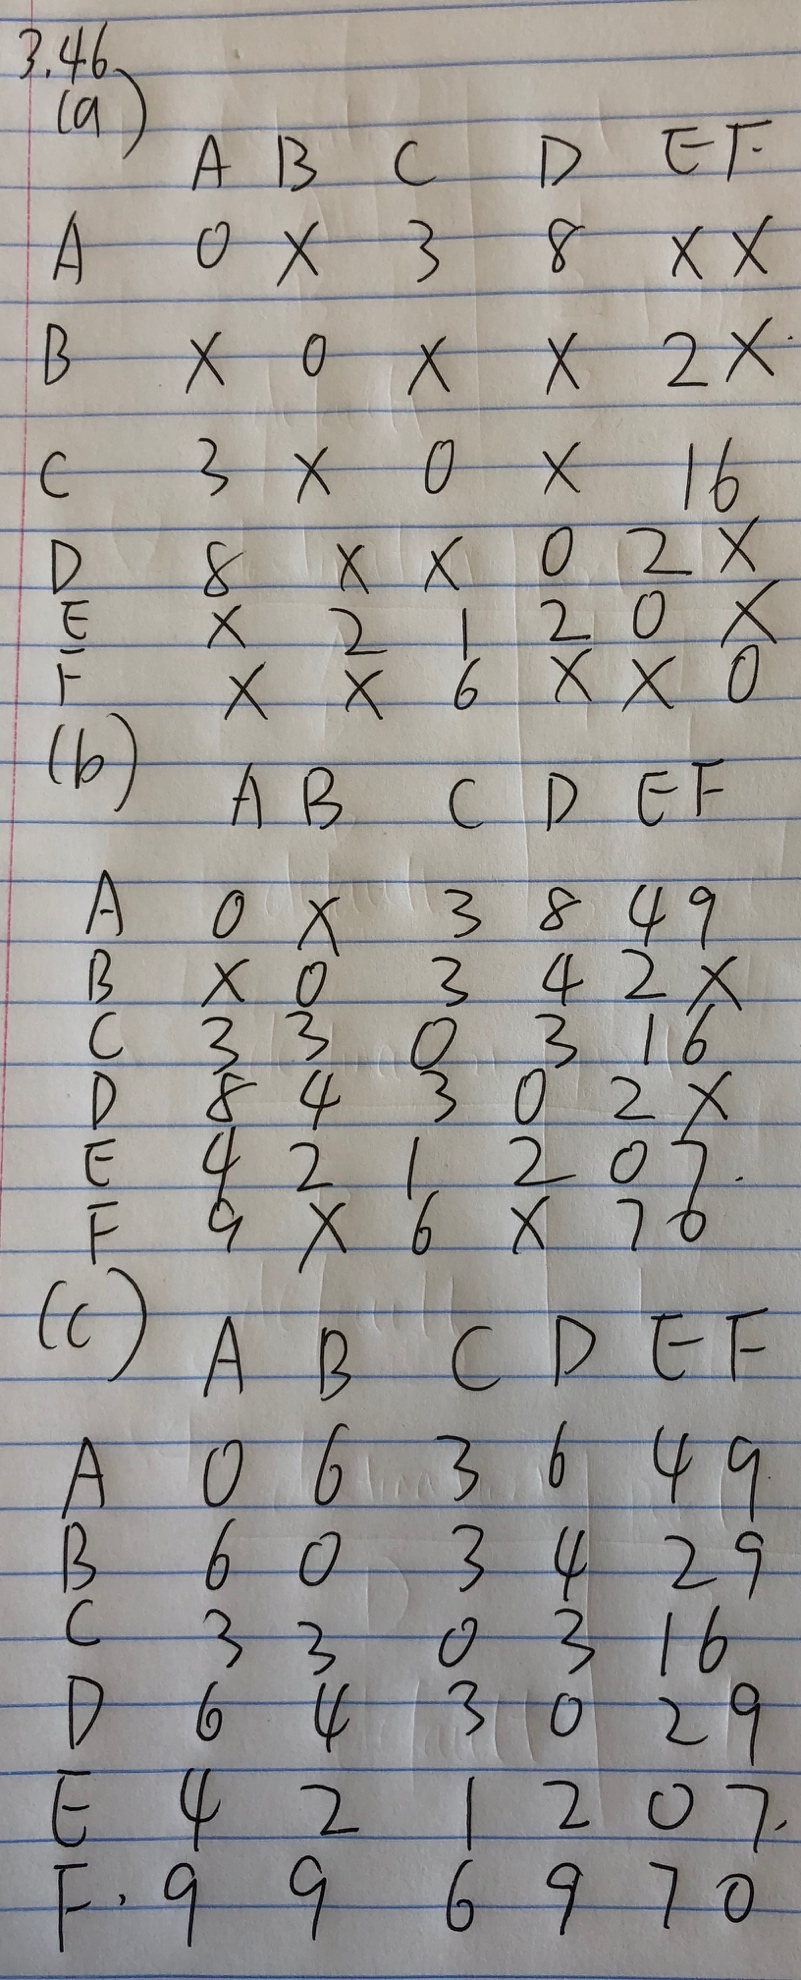 3.46
(a)
A B C D E F
A 0 X 3 8 X X
B X 0 X X 2 X
C 3 X 0 X 1 6
D 8 X X 0 2 X
E X 2 1 2 0 X
F X X 6 X X 0
(b)
A B C D E F
A 0 X 3 8 4 9
B X 0 3 4 2 X
C 3 3 0 3 1 6
D 8 4 3 0 2 X
E 4 2 1 2 0 7.
F 9 X 6 X 7 0
(c)
A B C D E F
A 0 6 3 6 4 9
B 6 0 3 4 2 9
C 3 3 0 3 1 6
D 6 4 3 0 2 9
E 4 2 1 2 0 7.
F. 9 9 6 9 7 0